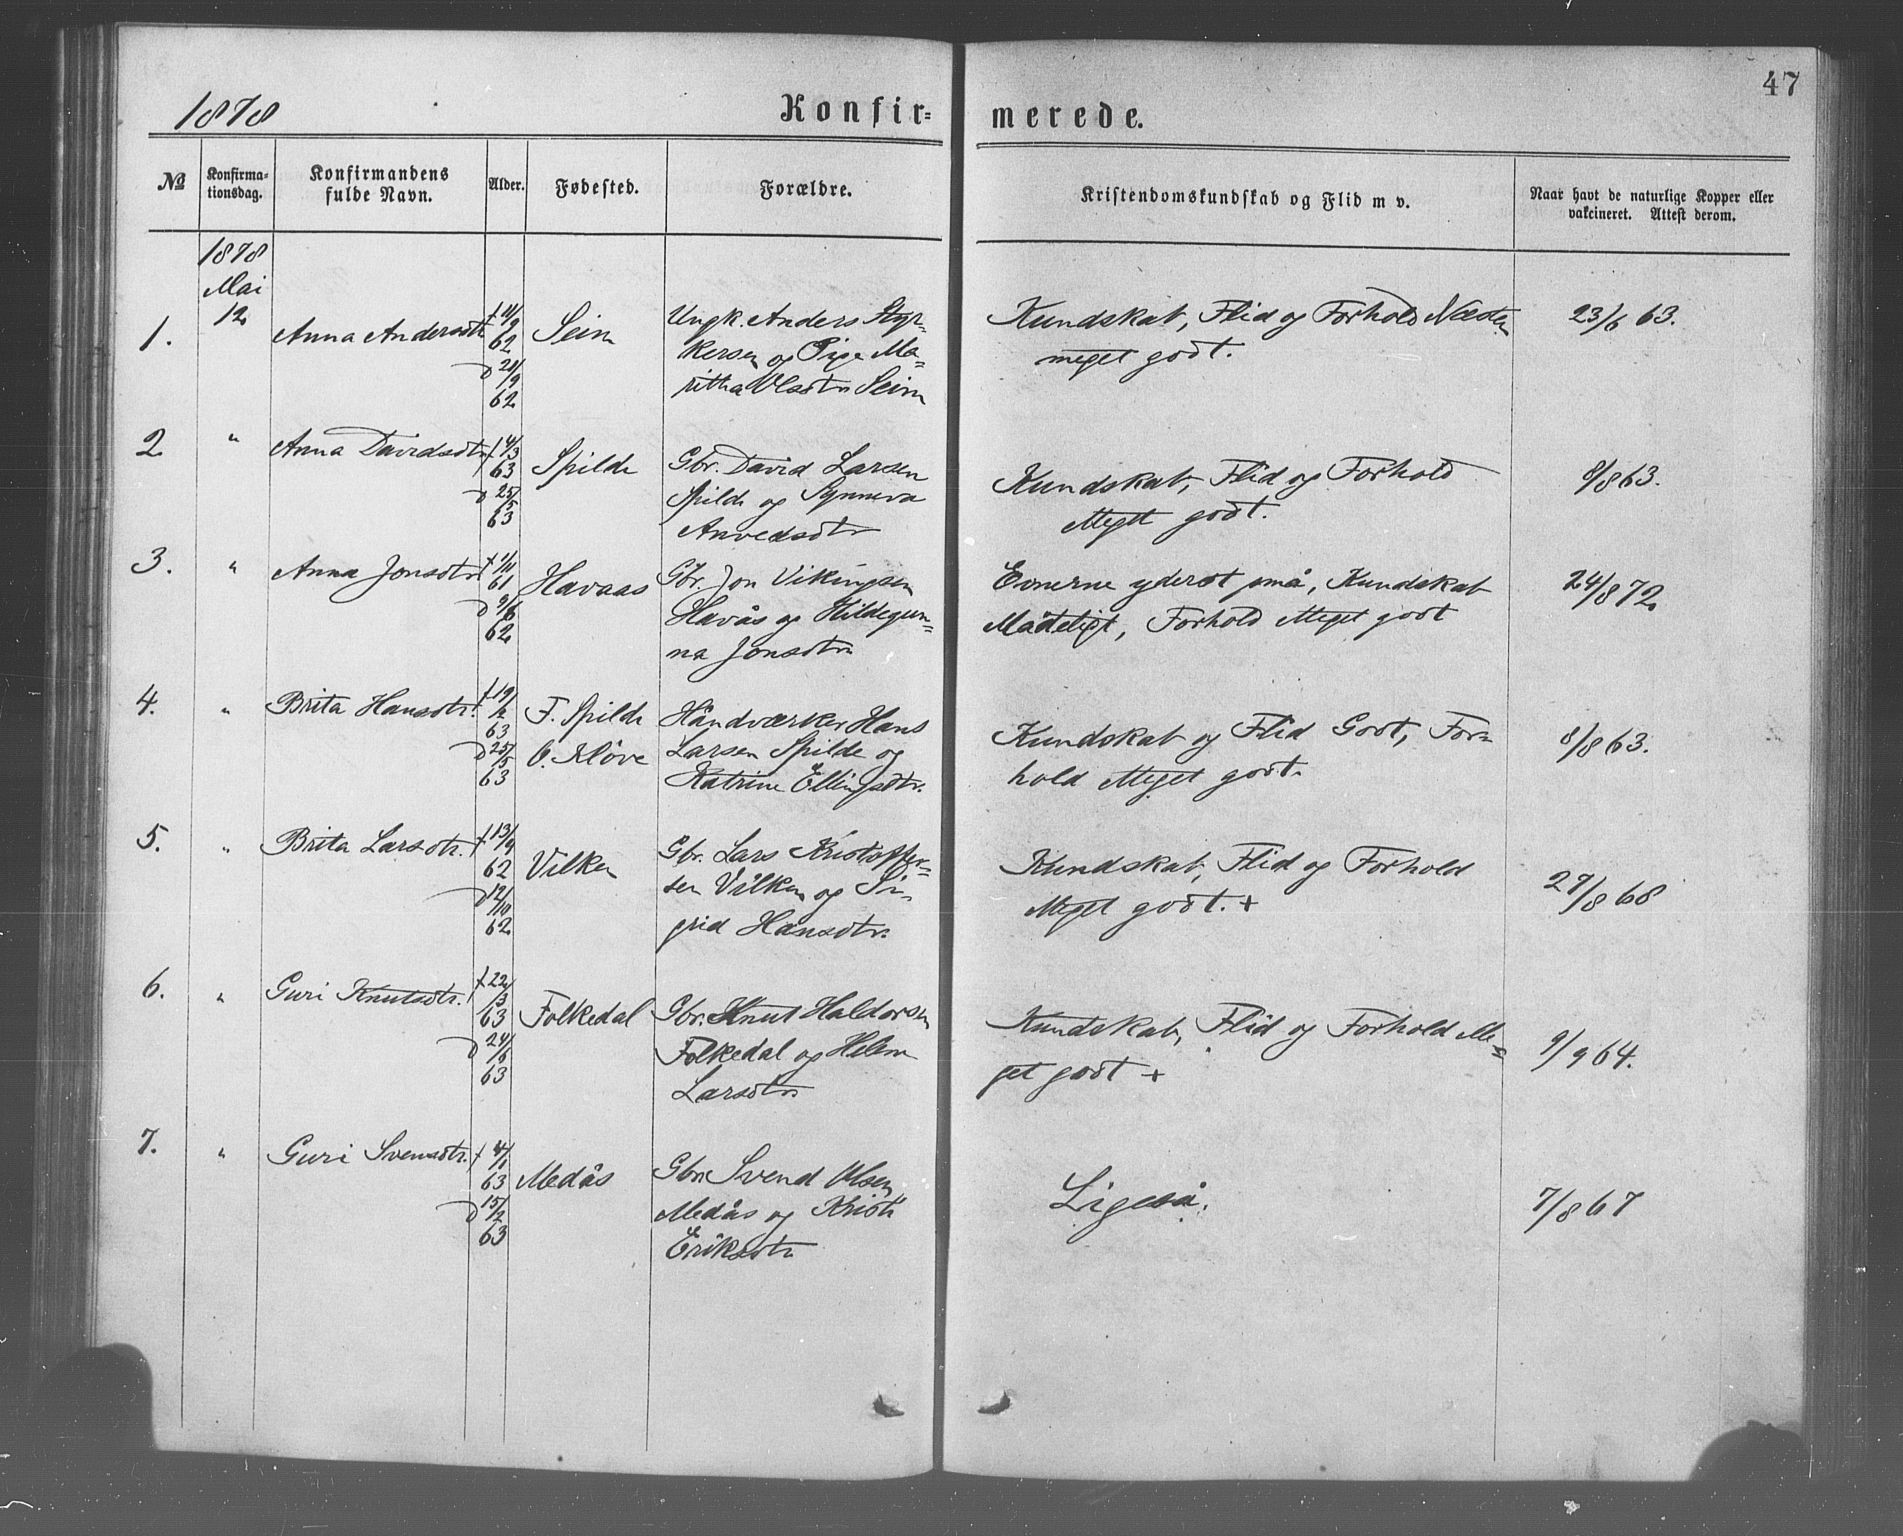 47
1878 Konfir= merede.
No Konfirma=tionsdag. Konfirmandens fulde Navn. Alder. Fødested. Forældre. Kristendomskundskab og Flid m v. Naar havt de naturlige Kopper eller vakcineret. Attest derom.
1878
Mai
12
1. Anna Andersdtr f 11/9 62 Seim Ungk. Anders Styr= Kundskab, Flid og Forhold Næsten 23/6 63.
d 21/9 62 kersen og Pige Ma= meget godt.
ritha Olsdtr Seim
2 " Anna Davidsdtr f 4/3 63 Spilde Gbr. David Larsen Kundskab, Flid og Forhold 8/8 63.
d 25/5 63 Spilde og Synneva Meget godt.
Anvedsdtr
3. " Anna Jonsdtr f 1/11 61 Havaas Gbr. Jon Vikingsen Evnerne yderst små, Kundskab 24/8 72.
d 9/6 62 Havås og Hildegun= Mådeligt, Forhold Meget godt
na Jonsdtr
4. " Brita Hansdtr. f 19/2 63 F. Spilde Håndværker Hans Kundskab og Flid Godt, For= 8/8 63.
d 25/5 63 O. Kløve Larsen Spilde og hold Meget godt.
Katrine Ellingsdtr.
5. " Brita Larsdtr. f 13/9 62 Vilken Gbr. Lars Kristoffer= Kundskab, Flid og Forhold 27/8 68
d 12/10 62 sen Vilken og Si= Meget godt. +
grid Hansdtr.
6. " Guri Knutsdtr. f 22/3 63 Folkedal Gbr. Knut Haldorsen Kundskab, Flid og Forhold Me= 9/9 64.
d 24/5 63 Folkedal og Helen get godt +
Larsdtr.
7. " Guri Svensdtr. f 4/1 63 Medås Gbr. Svend Olsen Ligeså. 7/8 67
d 15/2 63 Medås og Kristi
Eriksdtr